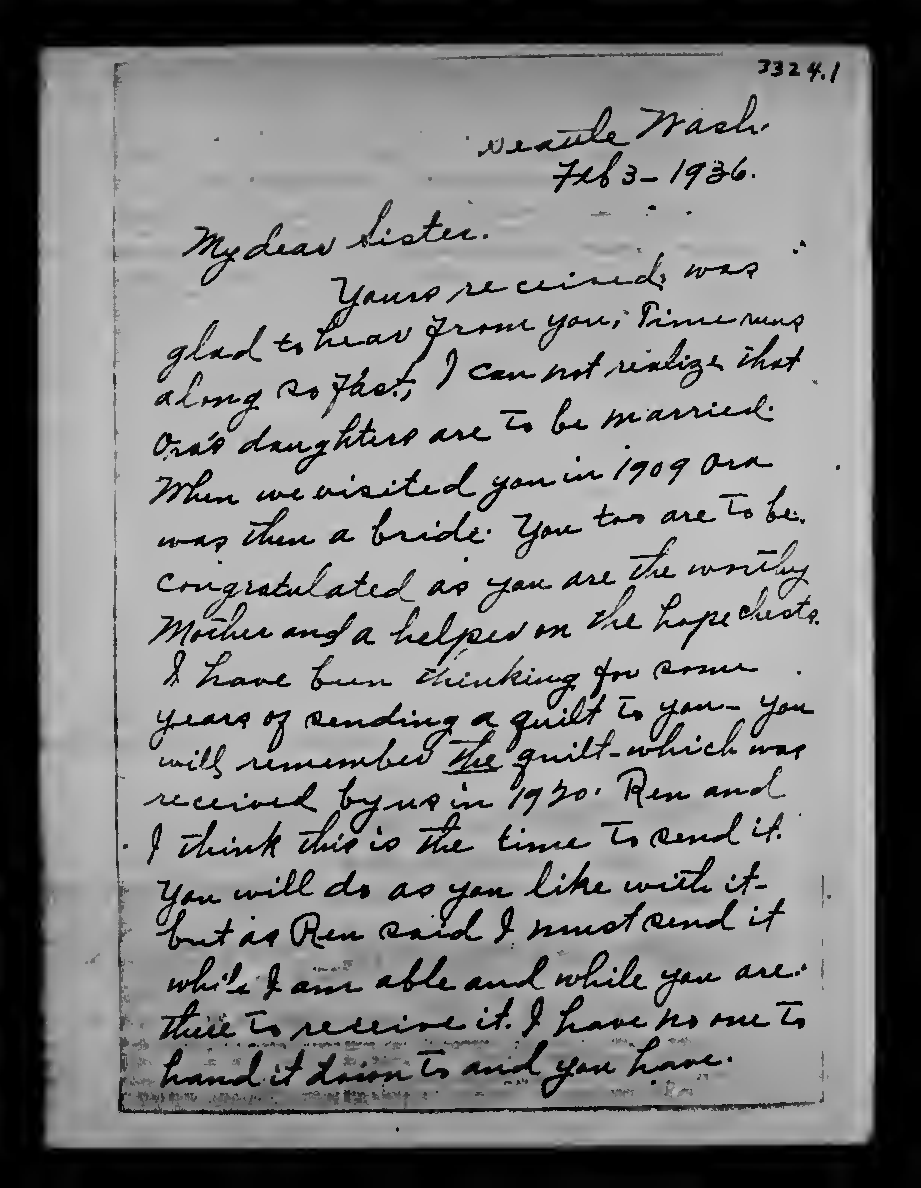 3324.1
Seattle Wash.
Feb 3 - 1936.
My dear Sister.
Yours received, was
glad to hear from you; Time runs
along so fast, I can not realize that
Ora's daughters are to be married.
When we visited you in 1909 Ora
was then a bride. You too are to be
congratulated as you are the worthy
Mother and a helper on the hope chests.
I have been thinking for some
years of sending a quilt to you - you
will remember the quilt - which was
received by us in 1920. Ren and
I think this is the time to send it.
You will do as you like with it -
but as Ren said I must send it
while I am able and while you are
there to receive it. I have no one to
hand it down to and you have.